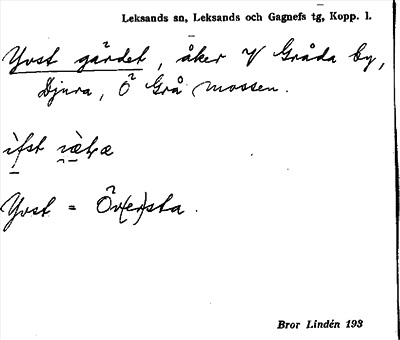 Leksands sn, Leksands och Gagnefs tg, Kopp. l.
Yvst gärdet, åker V Gråda by,
Djura, Ö Grå mossen.
Yvst = Öv(er)sta.
Bror Lindén 193